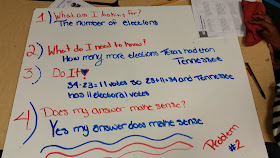 1) What am I looking for?
The number of elections
2) What do I need to know?
How many more elections Texas had than
Tennessee
3) Do It
34-23=11 votes so 23+11=34 and Tennessee
has 11 electoral votes
4) Does my answer make sense?
Yes my answer does make sense
Problem
#2